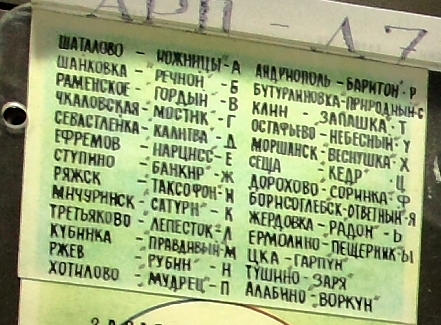 АРП - Л7
ШАТАЛОВО - "НОЖНИЦЫ"-А
ШАНКОВКА - "РЕЧНОЙ" - Б
РАМЕНСКОЕ - "ГОРДЫН" - В
ЧКАЛОВСКАЯ-"МОСТИК"- Г
СЕВАСТЛЕЙКА-"КАЛИТВА"- Д
ЕФРЕМОВ - "НАРЦИСС"- Е
СТУПИНО - "БАНКИР"- Ж
РЯЖСК - "ТАКСОФОН"-И
МИЧУРИНСК-"САТУРН"- К
ТРЕТЬЯКОВО-"ЛЕПЕСТОК"-Л
КУБИНКА - "ПРАВДИВЫЙ"-М
РЖЕВ - "РУБИН" - Н
ХОТИЛОВО - "МУДРЕЦ"- П
АНДРИОПОЛЬ -"БАРИТОН"- Р
БУТУРЛИНОВКА-"ПРИРОДНЫЙ"-С
КЛИН - "ЗАПАШКА"- Т
ОСТАФЬЕВО -"НЕБЕСНЫЙ"- У
МОРШАНСК -"ВЕСНУШКА"-Х
СЕЩА - "КЕДР" - Ц
ДОРОХОВО -"СОРИНКА"-Ф
БОРИСОГЛЕБСК-"ОТВЕТНЫЙ"-Я
ЖЕРДОВКА -"РАДОН"- Ь
ЕРМОЛИНО -"ПЕЩЕРНИК"-Ы
ЦКА -"ГАРПУН"
ТУШИНО -"ЗАРЯ"
АЛАБИНО -"ВОРКУН"